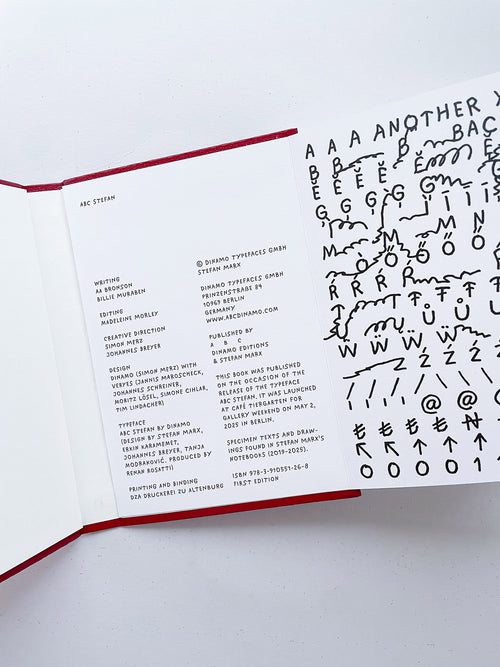 ABC STEFAN
WRITING
AA BRONSON
BILLIE MURABEN
EDITING
MADELEINE MORLEY
CREATIVE DIRECTION
SIMON MERZ
JOHANNES BREYER
DESIGN
DINAMO (SIMON MERZ) WITH
VERYES (JANNIS MABOSCHECK,
JOHANNES SCHREINER,
MORITZ LÖSEL, SIMONE CIHLAR,
TIM LINDACHER)
TYPEFACE
ABC STEFAN BY DINAMO
(DESIGN BY STEFAN MARX,
ERKIN KARAMEMET,
JOHANNES BREYER, TANJA
MODRAKOVIĆ. PRODUCED BY
RENAN ROSATTI)
PRINTING AND BINDING
DZA DRUCKEREI ZU ALTENBURG
© DINAMO TYPEFACES GMBH
STEFAN MARX
DINAMO TYPEFACES GMBH
PRINZENSTRAßE 84
10969 BERLIN
GERMANY
WWW.ABCDINAMO.COM
PUBLISHED BY
A B C
DINAMO EDITIONS
& STEFAN MARX
THIS BOOK WAS PUBLISHED
ON THE OCCASION OF THE
RELEASE OF THE TYPEFACE
ABC STEFAN. IT WAS LAUNCHED
AT CAFÉ TIERGARTEN FOR
GALLERY WEEKEND ON MAY 2,
2025 IN BERLIN.
SPECIMEN TEXTS AND DRAW-
INGS FOUND IN STEFAN MARX'S
NOTEBOOKS (2019-2025).
ISBN 978-3-910551-26-8
FIRST EDITION
A A A ANOTHER
B B BAÇ
Ĕ Ě Ě Ě Ĕ
Ģ Ģ Ģ Ģ
M M N
Ŕ Ŕ Ŕ
Ẅ Ẅ Ẅ Ẅ
/ / / / \ \ \
@ @
↖ ↖ ↑ ↑ ↑
0 0 0 0 1